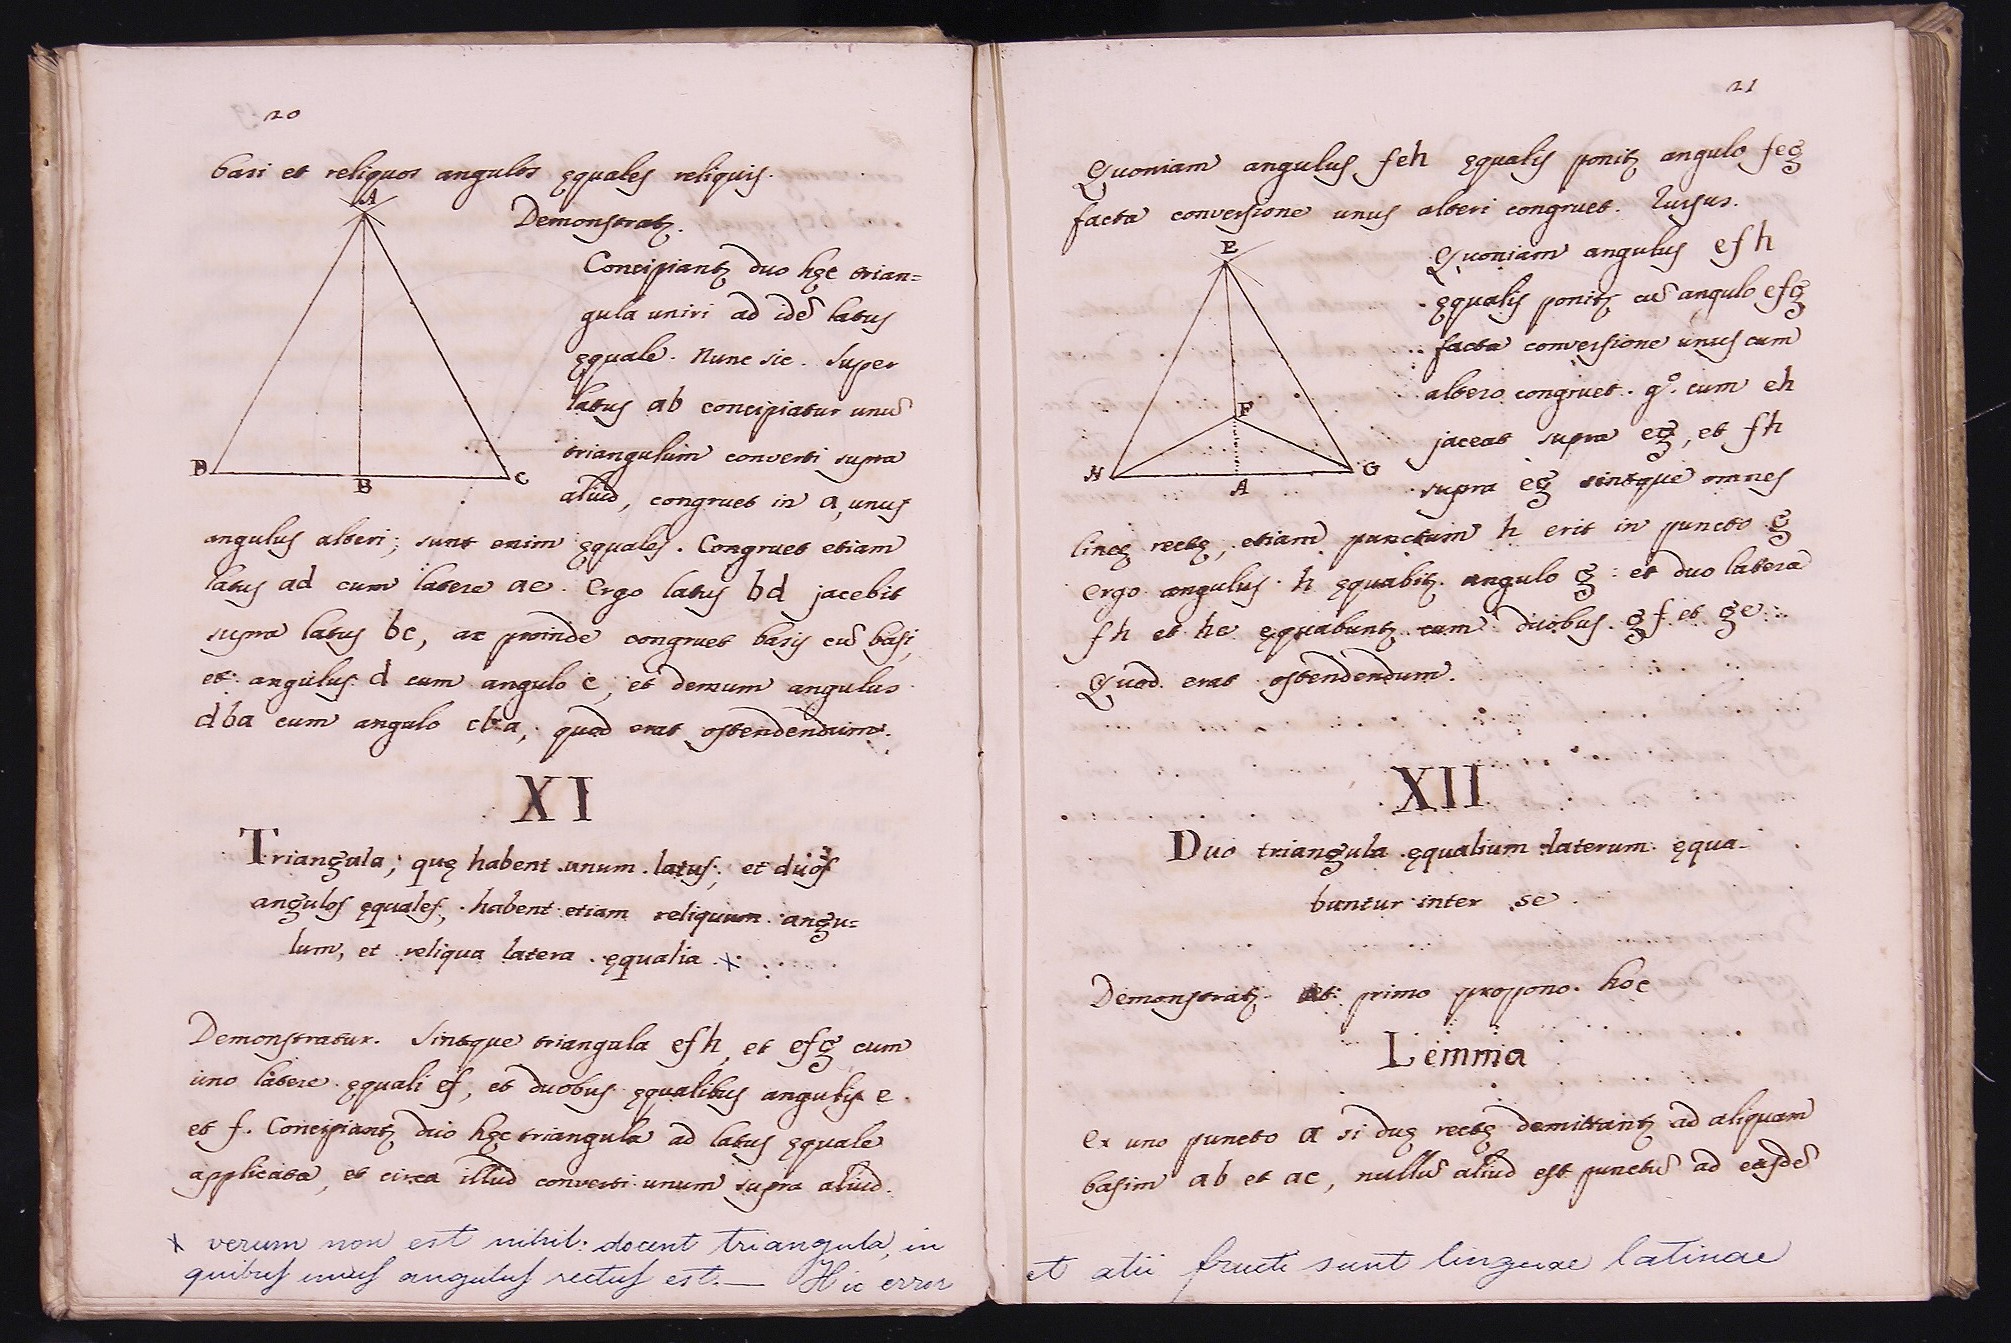 20
basi et reliquos angulos ęquales reliquis.
A
Demonstratɀ.
Concipiantɀ duo hęc trian=
gula uniri ad idē latus
ęquale. Nunc sic. super
latus ab concipiatur unū
triangulum converti supra
aliud, congruet in a, unus
D B C
angulus alteri; sunt enim ęquales. Congruet etiam
latus ad cum latere ac. Ergo latus bd jacebit
supra latus bc, ac proinde congruet basis cū basi,
et angulus d cum angulo c, et demum angulus
dba cum angulo cba, quod erat ostendendum.
XI
Triangula; quę habent unum latus, et duos
angulos ęquales, habent etiam reliquum angu=
lum, et reliqua latera ęqualia x
Demonstratur. Sintque triangula efh, et efg cum
uno latere ęquali ef, et duobus ęqualibus angulis e
et f. Concipiantɀ duo hęc triangula ad latus ęquale
applicata, et circa illud converti unum supra aliud.
x verum non est nihil: docent triangula, in
quibus unus angulus rectus est. — Hic error
21
Quoniam angulus feh ęqualis ponitɀ angulo feg
facta conversione unus alteri congruet. Rursus.
E
Quoniam angulus efh
ęqualis ponitɀ cū angulo efg
facta conversione unus cum
altero congruet. gº. cum eh
F
jaceat supra eg, et fh
H A G
supra eg sintque omnes
lineę rectę, etiam punctum h erit in puncto g
ergo angulus h ęquabitɀ angulo g: et duo latera
fh et he ęquabuntɀ cum duobus gf et ge
Quod erat ostendendum.
XII
Duo triangula ęqualium laterum ęqua-
buntur inter se
Demonstratɀ et primo propono hoc
Lemma
Ex uno puncto a si duę rectę demittantɀ ad aliquam
basim ab et ac, nullū aliud est punctū ad easdē
et alii fructi sunt linguae latinae